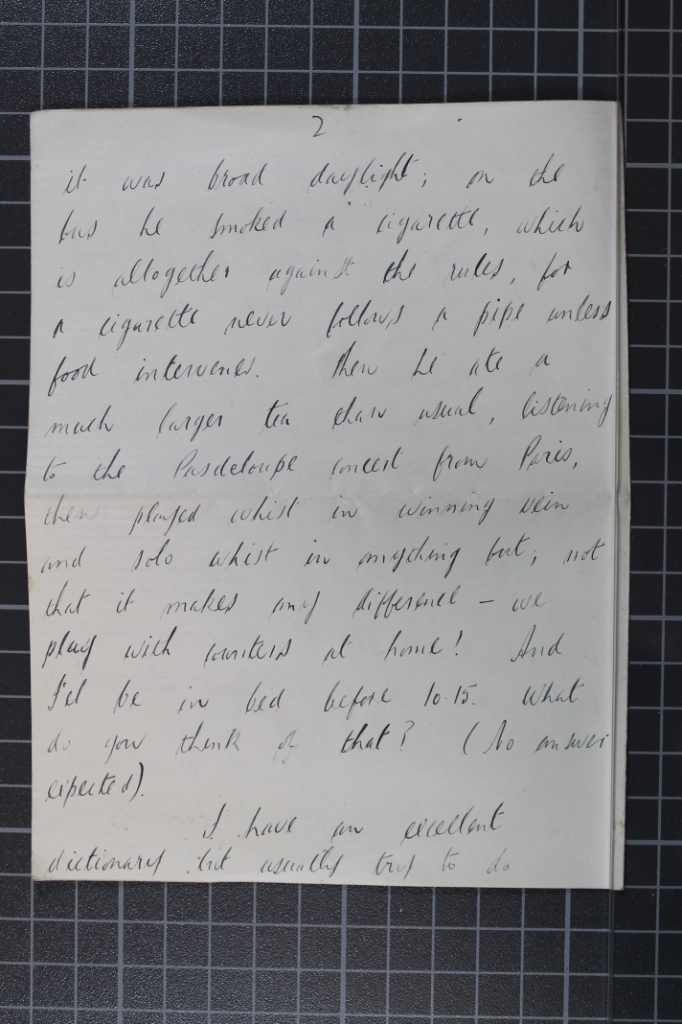 2
it was broad daylight; on the
bus he smoked a cigarette, which
is altogether against the rules, for
a cigarette never follows a pipe unless
food intervenes. Then he ate a
much larger tea than usual, listening
to the Pasdeloupe concert from Paris,
then played whist in winning vein
and solo whist in anything but; not
that it makes any difference – we
play with counters at home! And
I'll be in bed before 10.15. What
do you think of that? (No answer
expected).
I have an excellent
dictionary but usually try to do